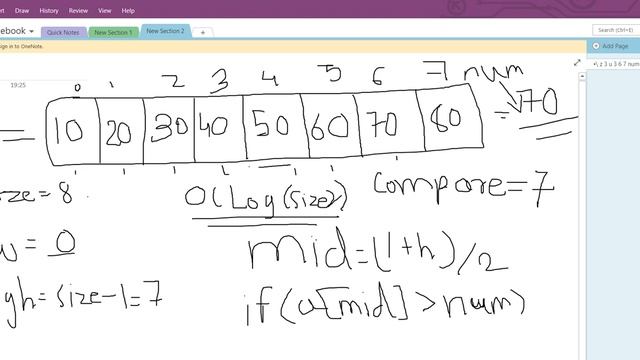 rt Draw History Review View
ebook Quick Notes New Section 1 New Section 2 + Search (Ctrl+E)
sign in to OneNote.
Add Page
19:25
0 1 2 3 4 5 6 7 num
10 20 30 40 50 60 70 80 = 70
ize = 8
O(Log(size))
compare = 7
w = 0
mid = (l+h)/2
gh = size-1 = 7
if(a[mid] > num)